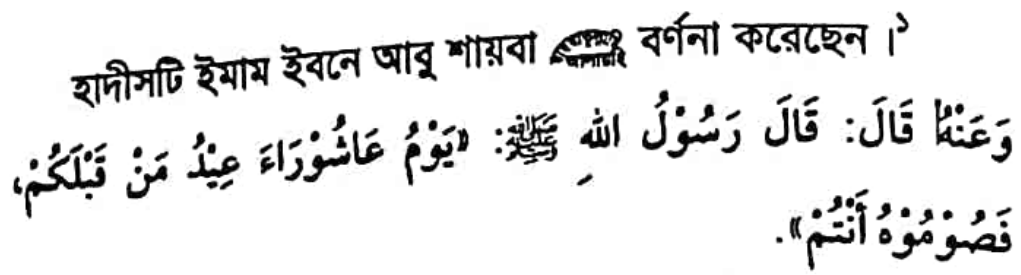 হাদীসটি ইমাম ইবনে আবু শায়বা বর্ণনা করেছেন ।১
وَعَنْهُ قَالَ: قَالَ رَسُوْلُ اللهِ ﷺ: «يَوْمُ عَاشُوْرَاءَ عِيْدُ مَنْ قَبْلَكُمْ،
فَصُوْمُوْهُ أَنْتُمْ».